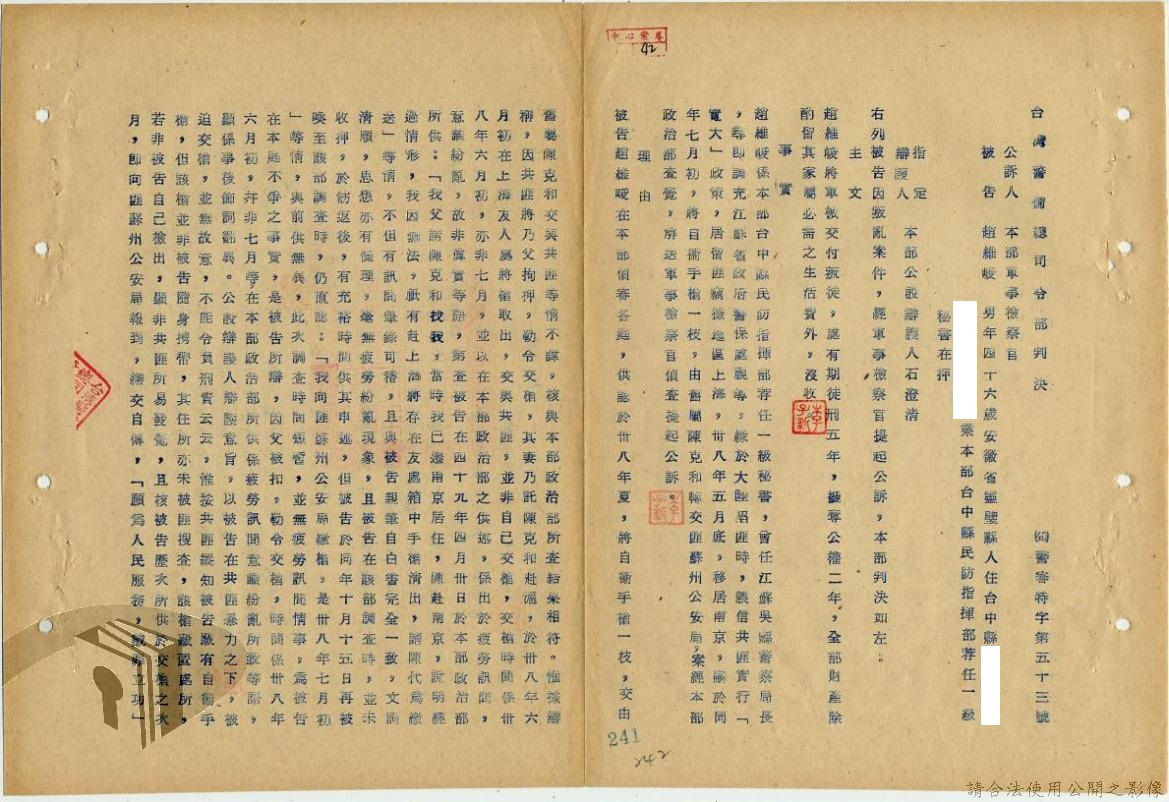 台灣警備總司令部判決
㈣警審特字第五十三號
公訴人 本部軍事檢察官
被告 趙維峻 男年四十六歲安徽省靈璧縣人任台中縣
業本部台中縣民防指揮部荐任一級
秘書在押
指定
辯護人 本部公設辯護人石澄清
右列被告因叛亂案件，經軍事檢察官提起公訴，本部判決如左：
主文
趙維峻將軍械交付叛徒，處有期徒刑五年，褫奪公權二年，全部財產除
酌留其家屬必需之生活費外，沒收。
事實
趙維峻係本部台中縣民防指揮部荐任一級秘書，曾任江蘇吳縣警察局長
，尋即調充江蘇省政府警保處視導，緣於大陸陷匪時，誤信共匪實行「
寬大」政策，居留匪竊據地區上海，卅八年五月底，移居南京，嗣於同
年七月初，將自衛手槍一枝，由舊屬陳克和轉交匪蘇州公安局，案經本部
政治部查覺，解送軍事檢察官偵查提起公訴。
理由
被告趙維峻在本部偵審各庭，供認於卅八年夏，將自衛手槍一枝，交由
舊屬陳克和交與共匪等情不諱，核與本部政治部所查結果相符。惟據辯
稱，因共匪將乃父拘押，勒令交槍，其妻乃託陳克和赴滬，於卅八年六
月初在上海友人處將槍取出，交與共匪，並非自己交槍，交槍時間係卅
八年六月初，亦非七月，並以在本部政治部之供述，係出於疲勞訊問，
意識紛亂，故非真實等語，第查被告在四十九年四月卅日於本部政治部
所供：「我父請陳克和找我，當時我已遷南京居住，陳赴南京，說明經
過情形，我因無法，祇有赴上海將存在友處箱中手槍清出，請陳代為繳
送」等情，不但有訊問筆錄可稽，且與被告親筆自白書完全一致，文詞
清順，思想亦有條理，毫無疲勞紛亂現象，且被告在該部調查時，並未
收押，於飭返後，有充裕時間供其申述，但被告於同年十月十五日再被
喚至該部調查時，仍直認：「我向匪蘇州公安局繳槍，是卅八年七月初
」等情，與前供無異，此次調查時間短暫，並無疲勞訊問情事，為被告
在本庭不爭之事實，是被告所辯，因父被扣，勒令交槍，時間係卅八年
六月初，幷非七月等，在本部政治部所供係疲勞訊問意識紛亂所致等語，
顯係事後飾詞翻異。公設辯護人辯護意旨，以被告在共匪暴力之下，被
迫交槍，並無故意，不能令負刑責云云，惟按共匪縱知被告藏有自衛手
槍，但該槍並非被告隨身攜帶，其住所亦未被匪搜查，該槍藏置處所，
若非被告自己檢出，顯非共匪所易發覺，且核被告歷次所供於交槍之次
月，即向匪蘇州公安局報到，繕交自傳，「願為人民服務，戴罪立功」
241
242
42
請合法使用公開之影像